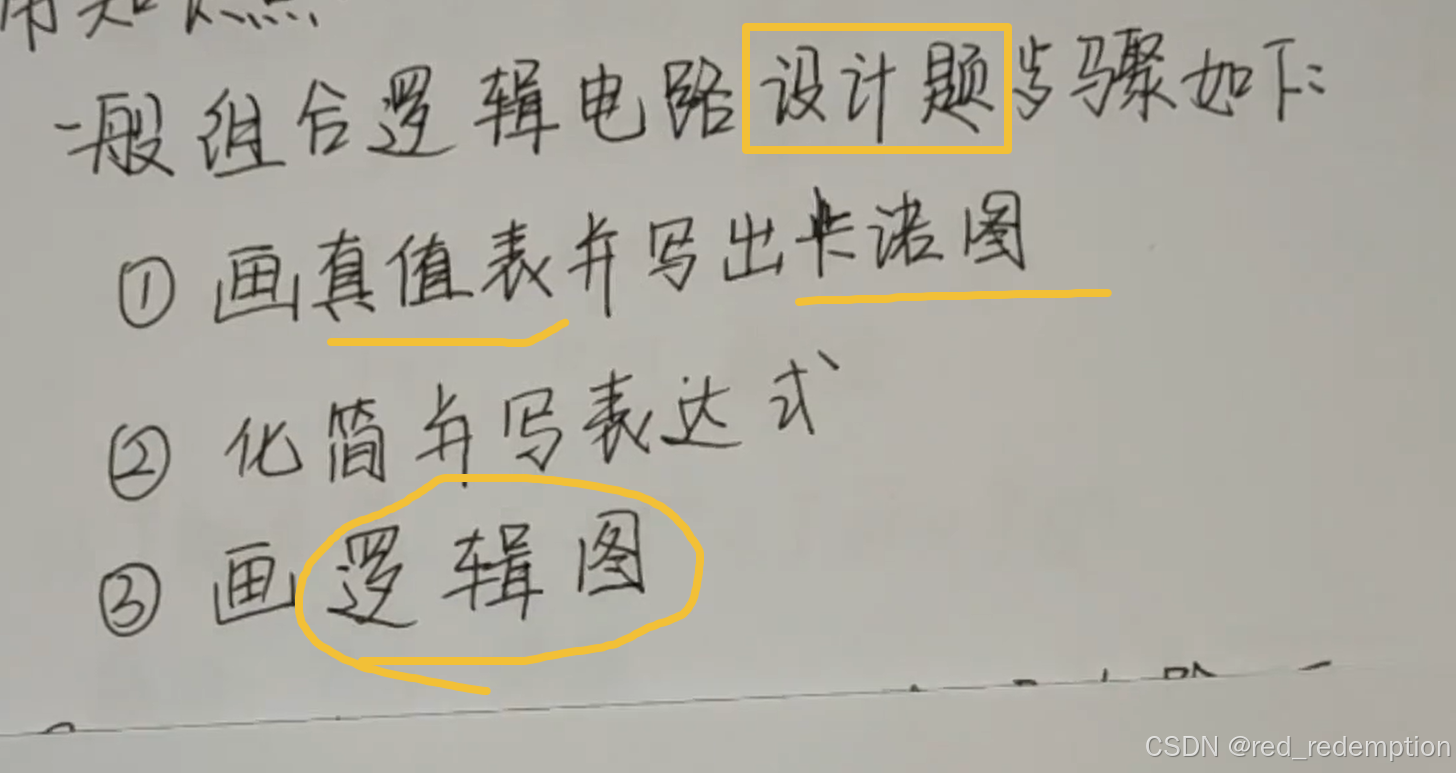 一般组合逻辑电路设计题步骤如下:
① 画真值表并写出卡诺图
② 化简并写表达式
③ 画逻辑图
CSDN @red_redemption